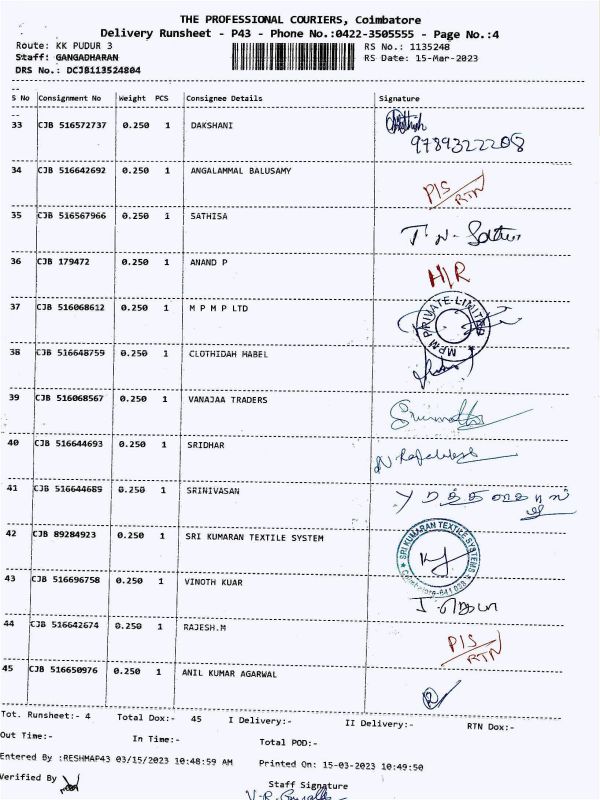 THE PROFESSIONAL COURIERS, Coimbatore
Delivery Runsheet - P43 - Phone No.:0422-3505555 - Page No.:4
Route: KK PUDUR 3 RS No.: 1135248
Staff: GANGADHARAN RS Date: 15-Mar-2023
DRS No.: DCJB113524804
S No Consignment No Weight PCS Consignee Details Signature
33 CJB 516572737 0.250 1 DAKSHANI
9789322208
34 CJB 516642692 0.250 1 ANGALAMMAL BALUSAMY
P/S RTN
35 CJB 516567966 0.250 1 SATHISA
36 CJB 179472 0.250 1 ANAND P
H/R
37 CJB 516068612 0.250 1 M P M P LTD
MPM PRIVATE LIMITED
38 CJB 516648759 0.250 1 CLOTHIDAH MABEL
39 CJB 516068567 0.250 1 VANAJAA TRADERS
40 CJB 516644693 0.250 1 SRIDHAR
41 CJB 516644689 0.250 1 SRINIVASAN
42 CJB 89284923 0.250 1 SRI KUMARAN TEXTILE SYSTEM
SRI KUMARAN TEXTILE SYSTEMS
Coimbatore-641 038
43 CJB 516696758 0.250 1 VINOTH KUAR
44 CJB 516642674 0.250 1 RAJESH.M
P/S RTN
45 CJB 516650976 0.250 1 ANIL KUMAR AGARWAL
Tot. Runsheet:- 4 Total Dox:- 45 I Delivery:- II Delivery:- RTN Dox:-
Out Time:- In Time:- Total POD:-
Entered By :RESHMAP43 03/15/2023 10:48:59 AM Printed On: 15-03-2023 10:49:50
Verified By Staff Signature